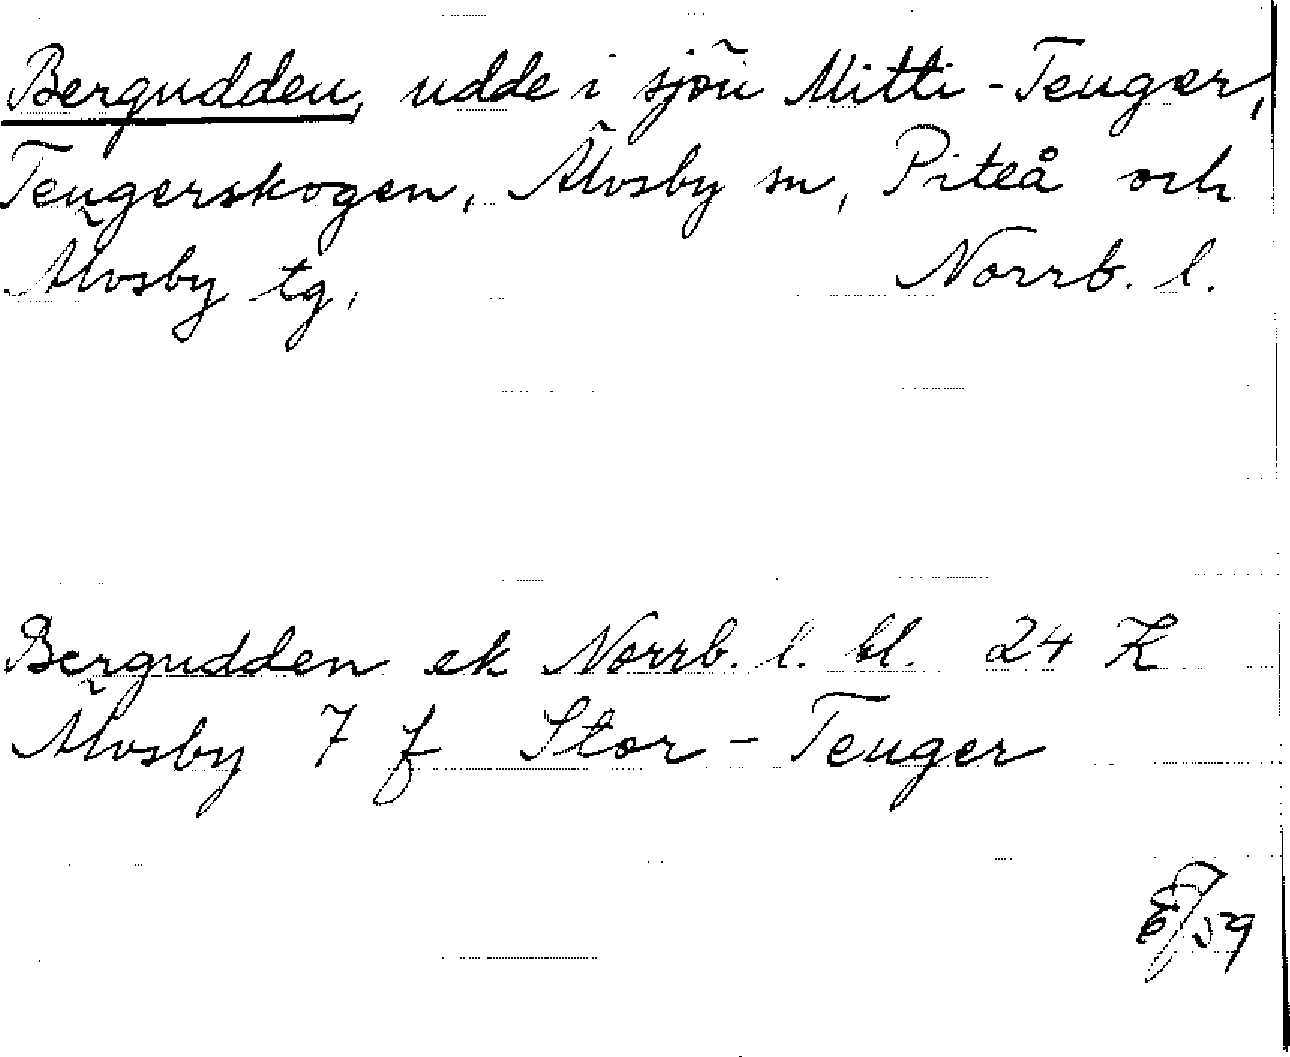 Bergudden, udde i sjön Mitti-Teuger,
Teugerskogen, Älvsby sn, Piteå och
Älvsby tg. Norrb. l.
Bergudden ek Norrb. l. bl. 24 Z
Älvsby 7 f Stor-Teuger
/59